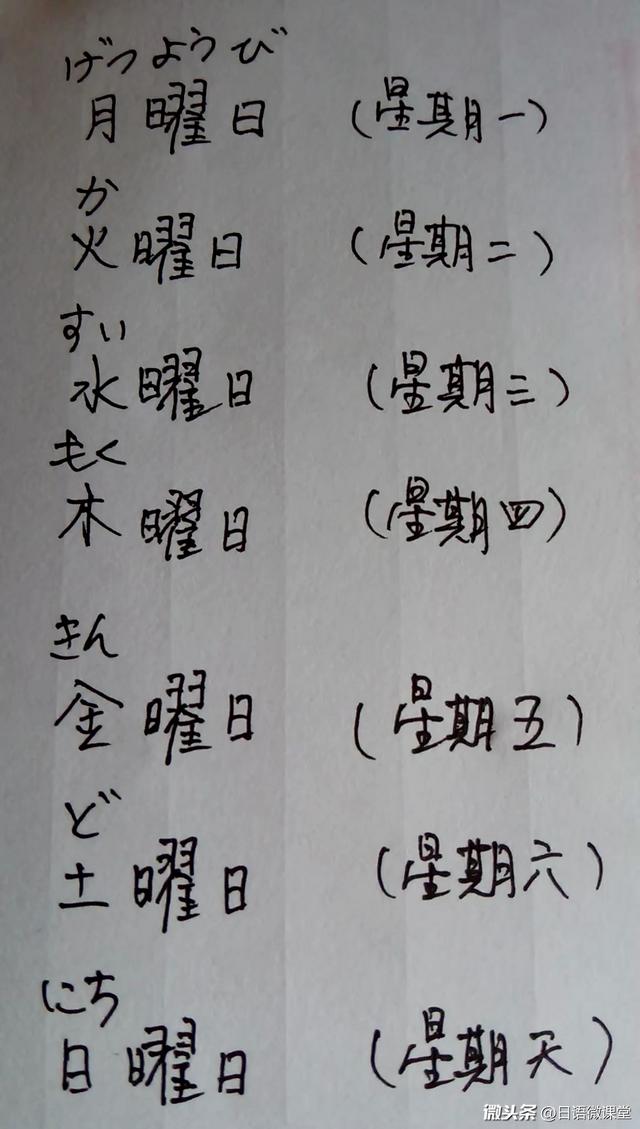 げつようび
月曜日 (星期一)
か
火曜日 (星期二)
すい
水曜日 (星期三)
もく
木曜日 (星期四)
きん
金曜日 (星期五)
ど
土曜日 (星期六)
にち
日曜日 (星期天)
微头条 @日语微课堂